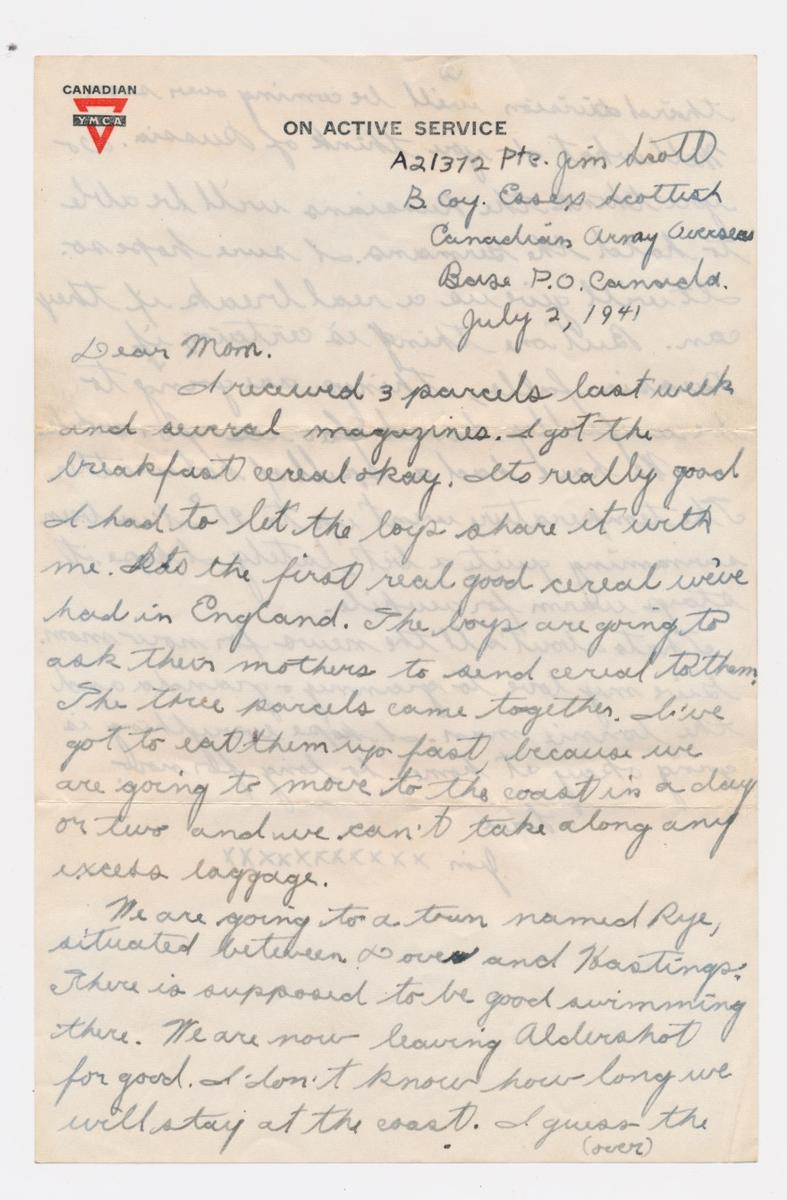 CANADIAN
YMCA
ON ACTIVE SERVICE
A21372 Pte. Jim Scott
B Coy. Essex Scottish
Canadian Army Overseas
Base P.O. Canada.
July 2, 1941
Dear Mom.
I received 3 parcels last week
and several magazines. I got the
breakfast cereal okay. Its really good
I had to let the boys share it with
me. Its the first real good cereal we've
had in England. The boys are going to
ask their mothers to send cerial to them.
The three parcels came together. I've
got to eat them up fast, because we
are going to move to the coast in a day
or two and we can't take along any
excess laggage.
We are going to a town named Rye,
situated between Dover and Hastings.
There is supposed to be good swimming
there. We are now leaving Aldershot
for good. I don't know how long we
will stay at the coast. I guess the
(over)